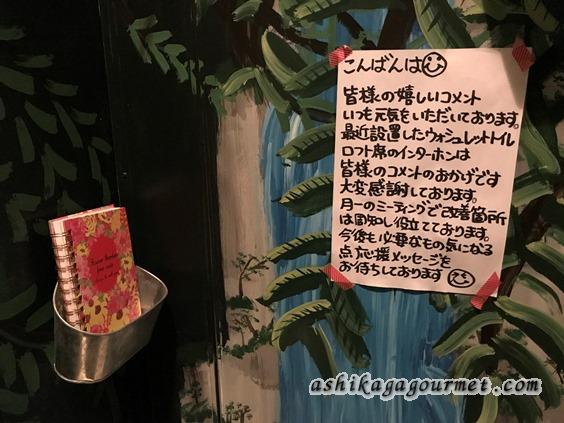 こんばんは
皆様の嬉しいコメント
いつも元気をいただいております。
最近設置したウォシュレットトイレ
ロフト席のインターホンは
皆様のコメントのおかげです
大変感謝しております。
月一のミーティングで改善箇所
は周知し役立てております。
今後も必要なもの気になる
点応援メッセージを
お待ちしております
ashikagagourmet.com